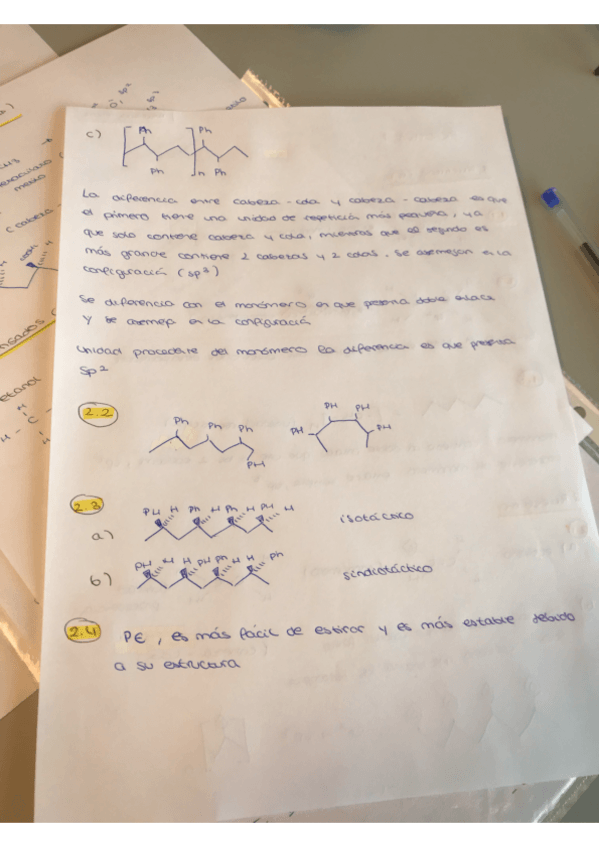 c)
Ph Ph
Ph n Ph
La diferencia entre cabeza-cola y cabeza-cabeza es que
el primero tiene una unidad de repetición más pequeña, ya
que solo contiene cabeza y cola, mientras que el segundo es
más grande contiene 2 cabezas y 2 colas. Se asemejan en la
configuración (sp³)
Se diferencia con el monómero en que presenta doble enlace
y se asemeja en la configuración
Unidad procedente del monómero la diferencia es que presenta
sp²
2.2
Ph Ph Ph PH
PH PH PH PH
2.3
a) PH H Ph H Ph H PH H isotáctico
b) PH H H PH Ph H H Ph sindiotáctico
2.4 PE, es más fácil de estirar y es más estable debido
a su estructura
etanol